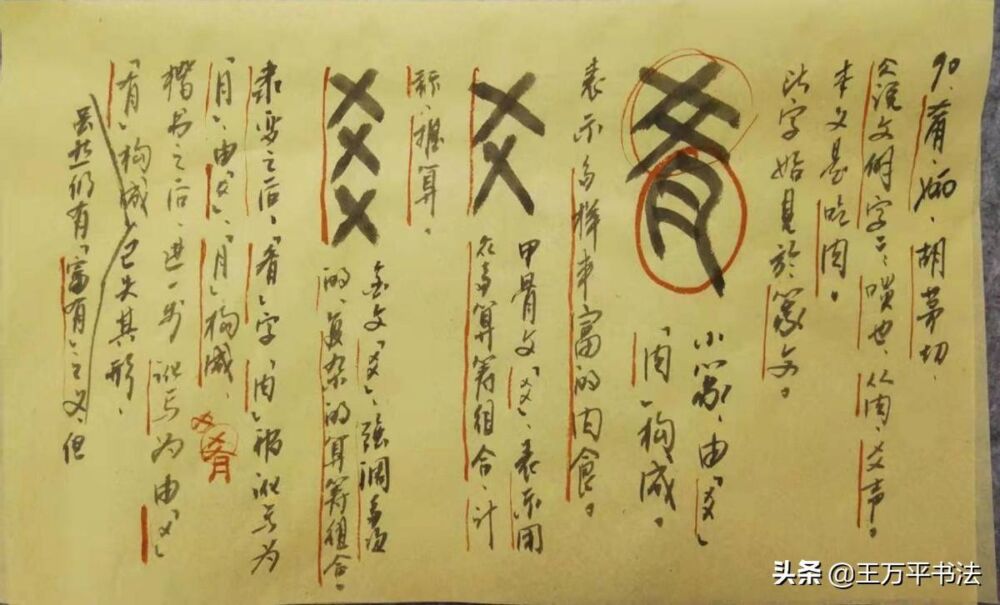 90、肴、yáo、胡茅切、
《说文解字》：啖也、从肉、爻声。
本义是吃肉。
此字始见於篆文。
肴
小篆、由「爻」
「肉」构成。
表示多样丰富的肉食。
爻
甲骨文「爻」、表示用
众多算筹组合、计
标、推算。
金文「爻」、强调多项
的、复杂的算筹组合。
隶变之后、「肴」字「肉」被讹写为
「月」、由「爻」、「月」构成、
爻肴
楷书之后、进一步讹写为由「乂」
「有」构成、已失其形、
虽然仍有「富有」之义、但
头条 @王万平书法